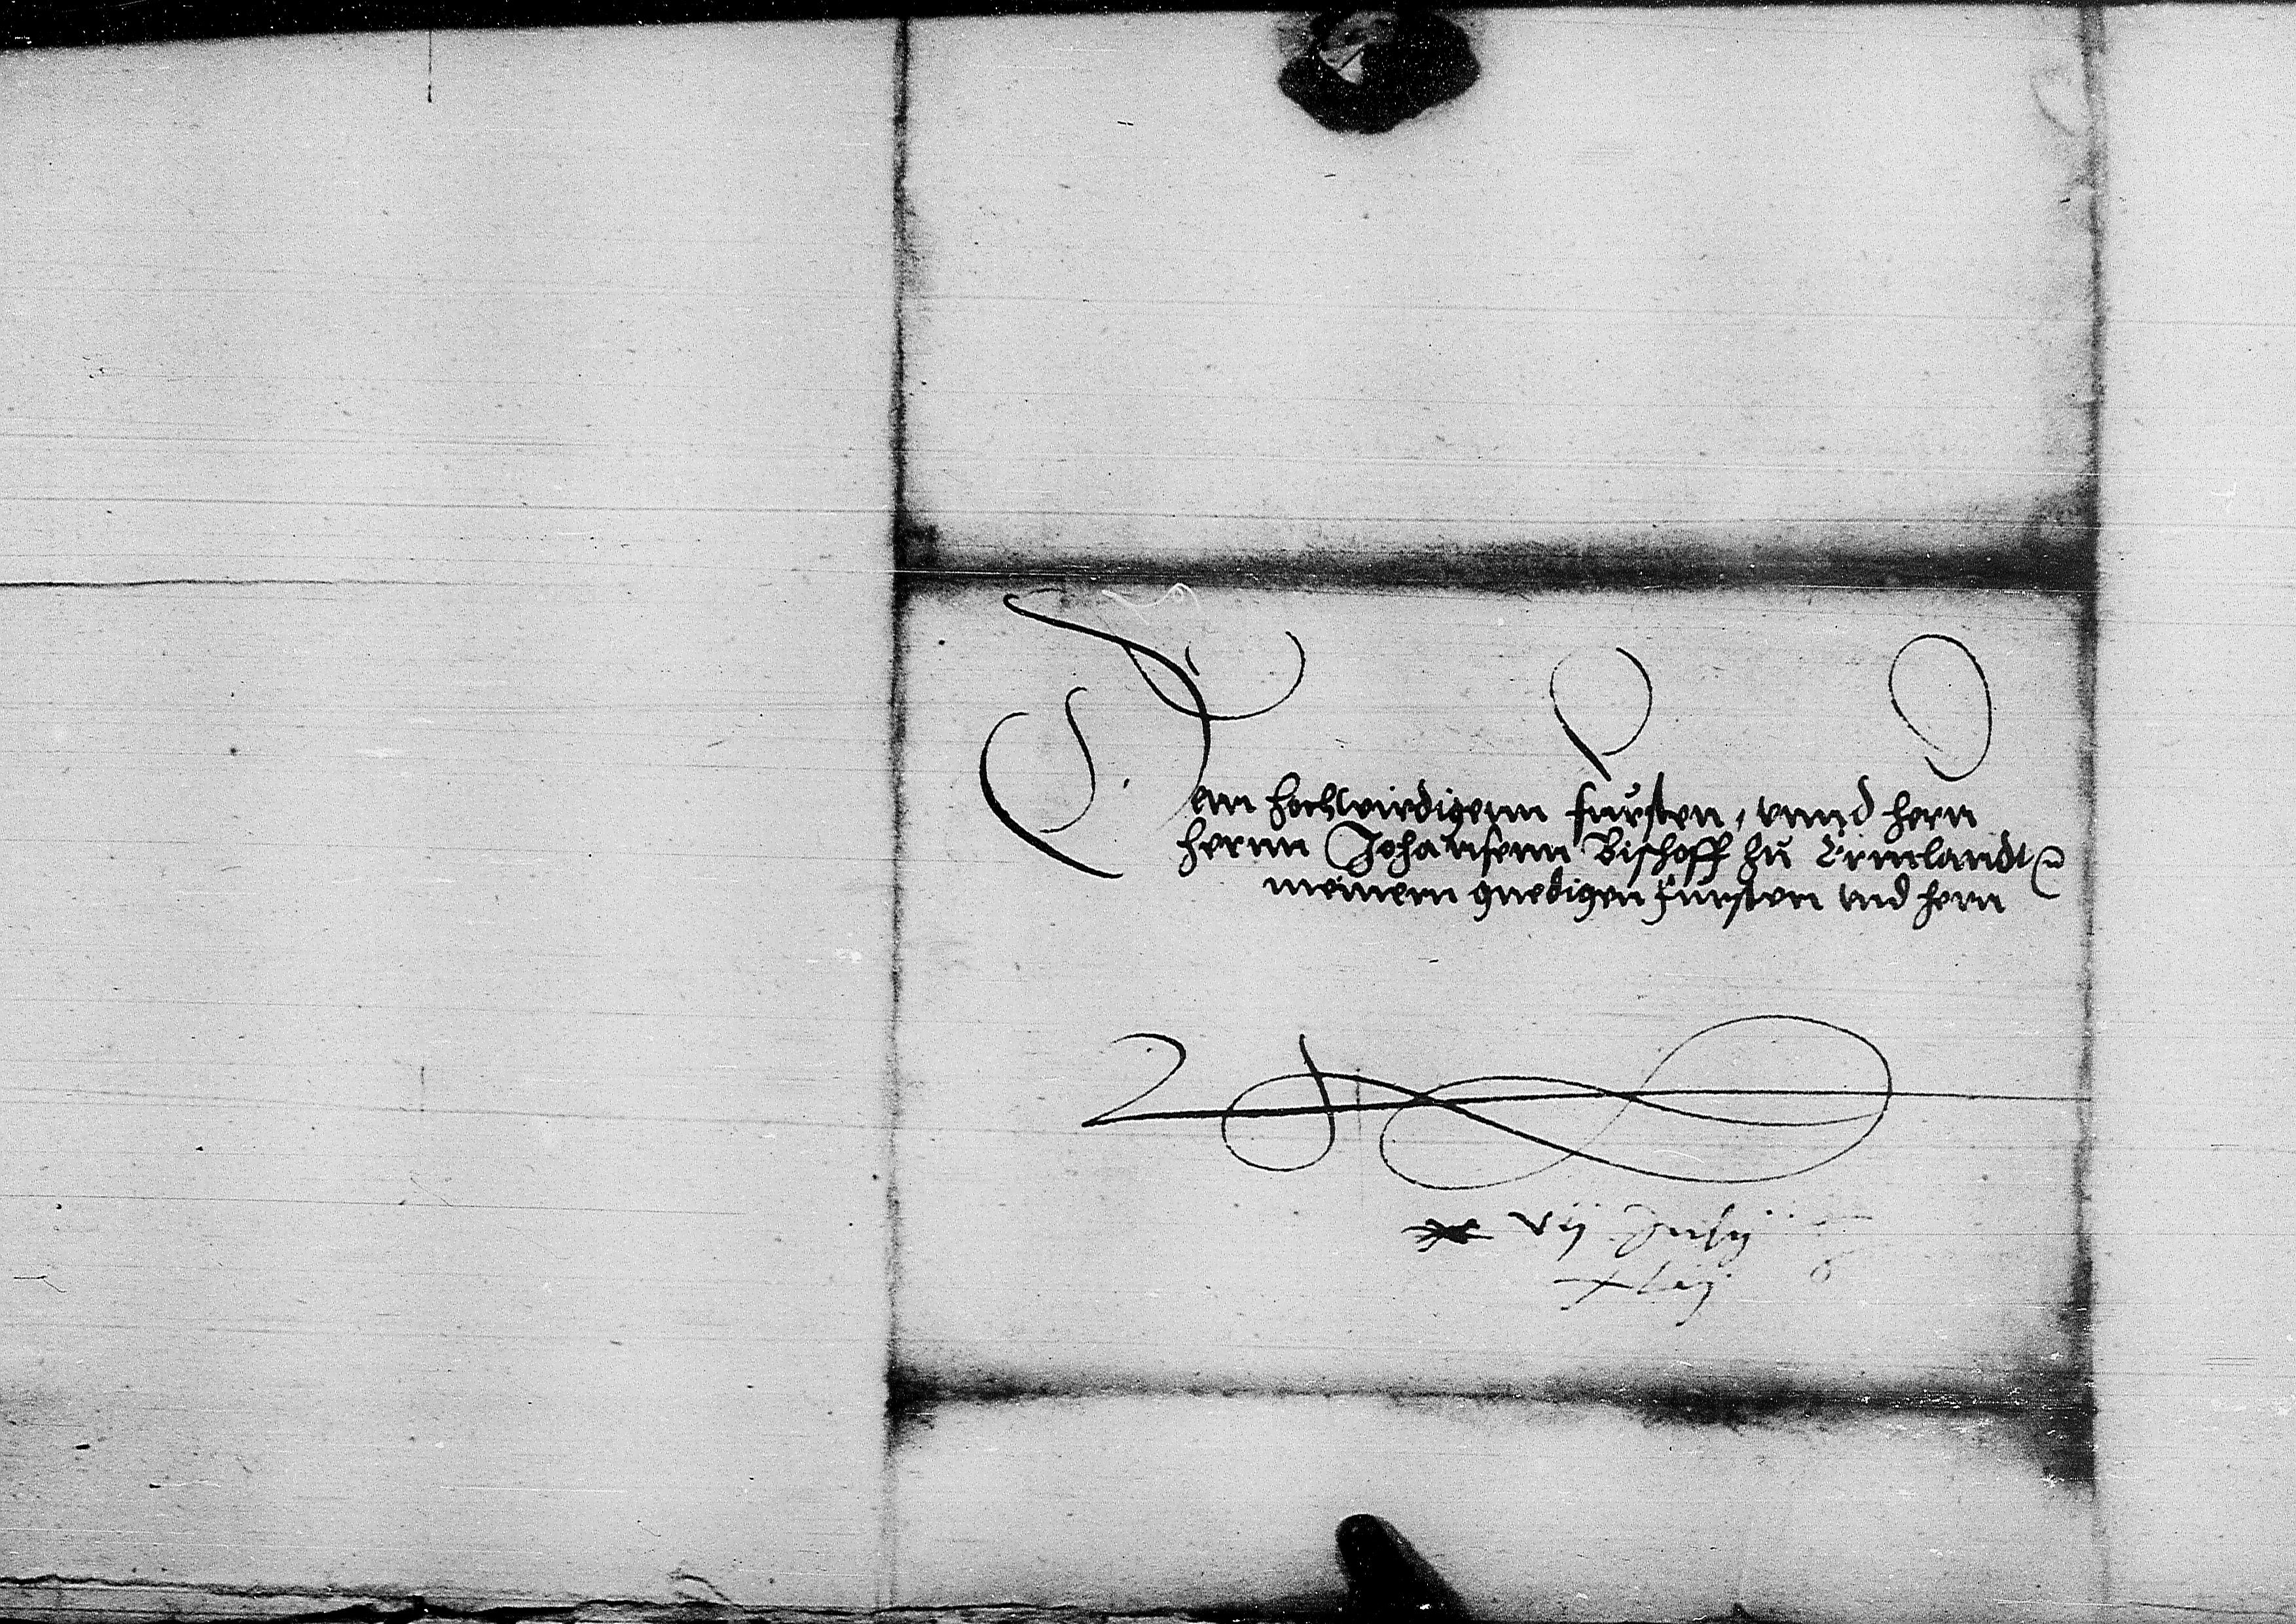 Dem hochwirdigenn fursten, vnnd hern
hernn Johansenn Bischoff zu Ermlandt
meinem gnedigen fursten vnd hern
vij Julij
xlij